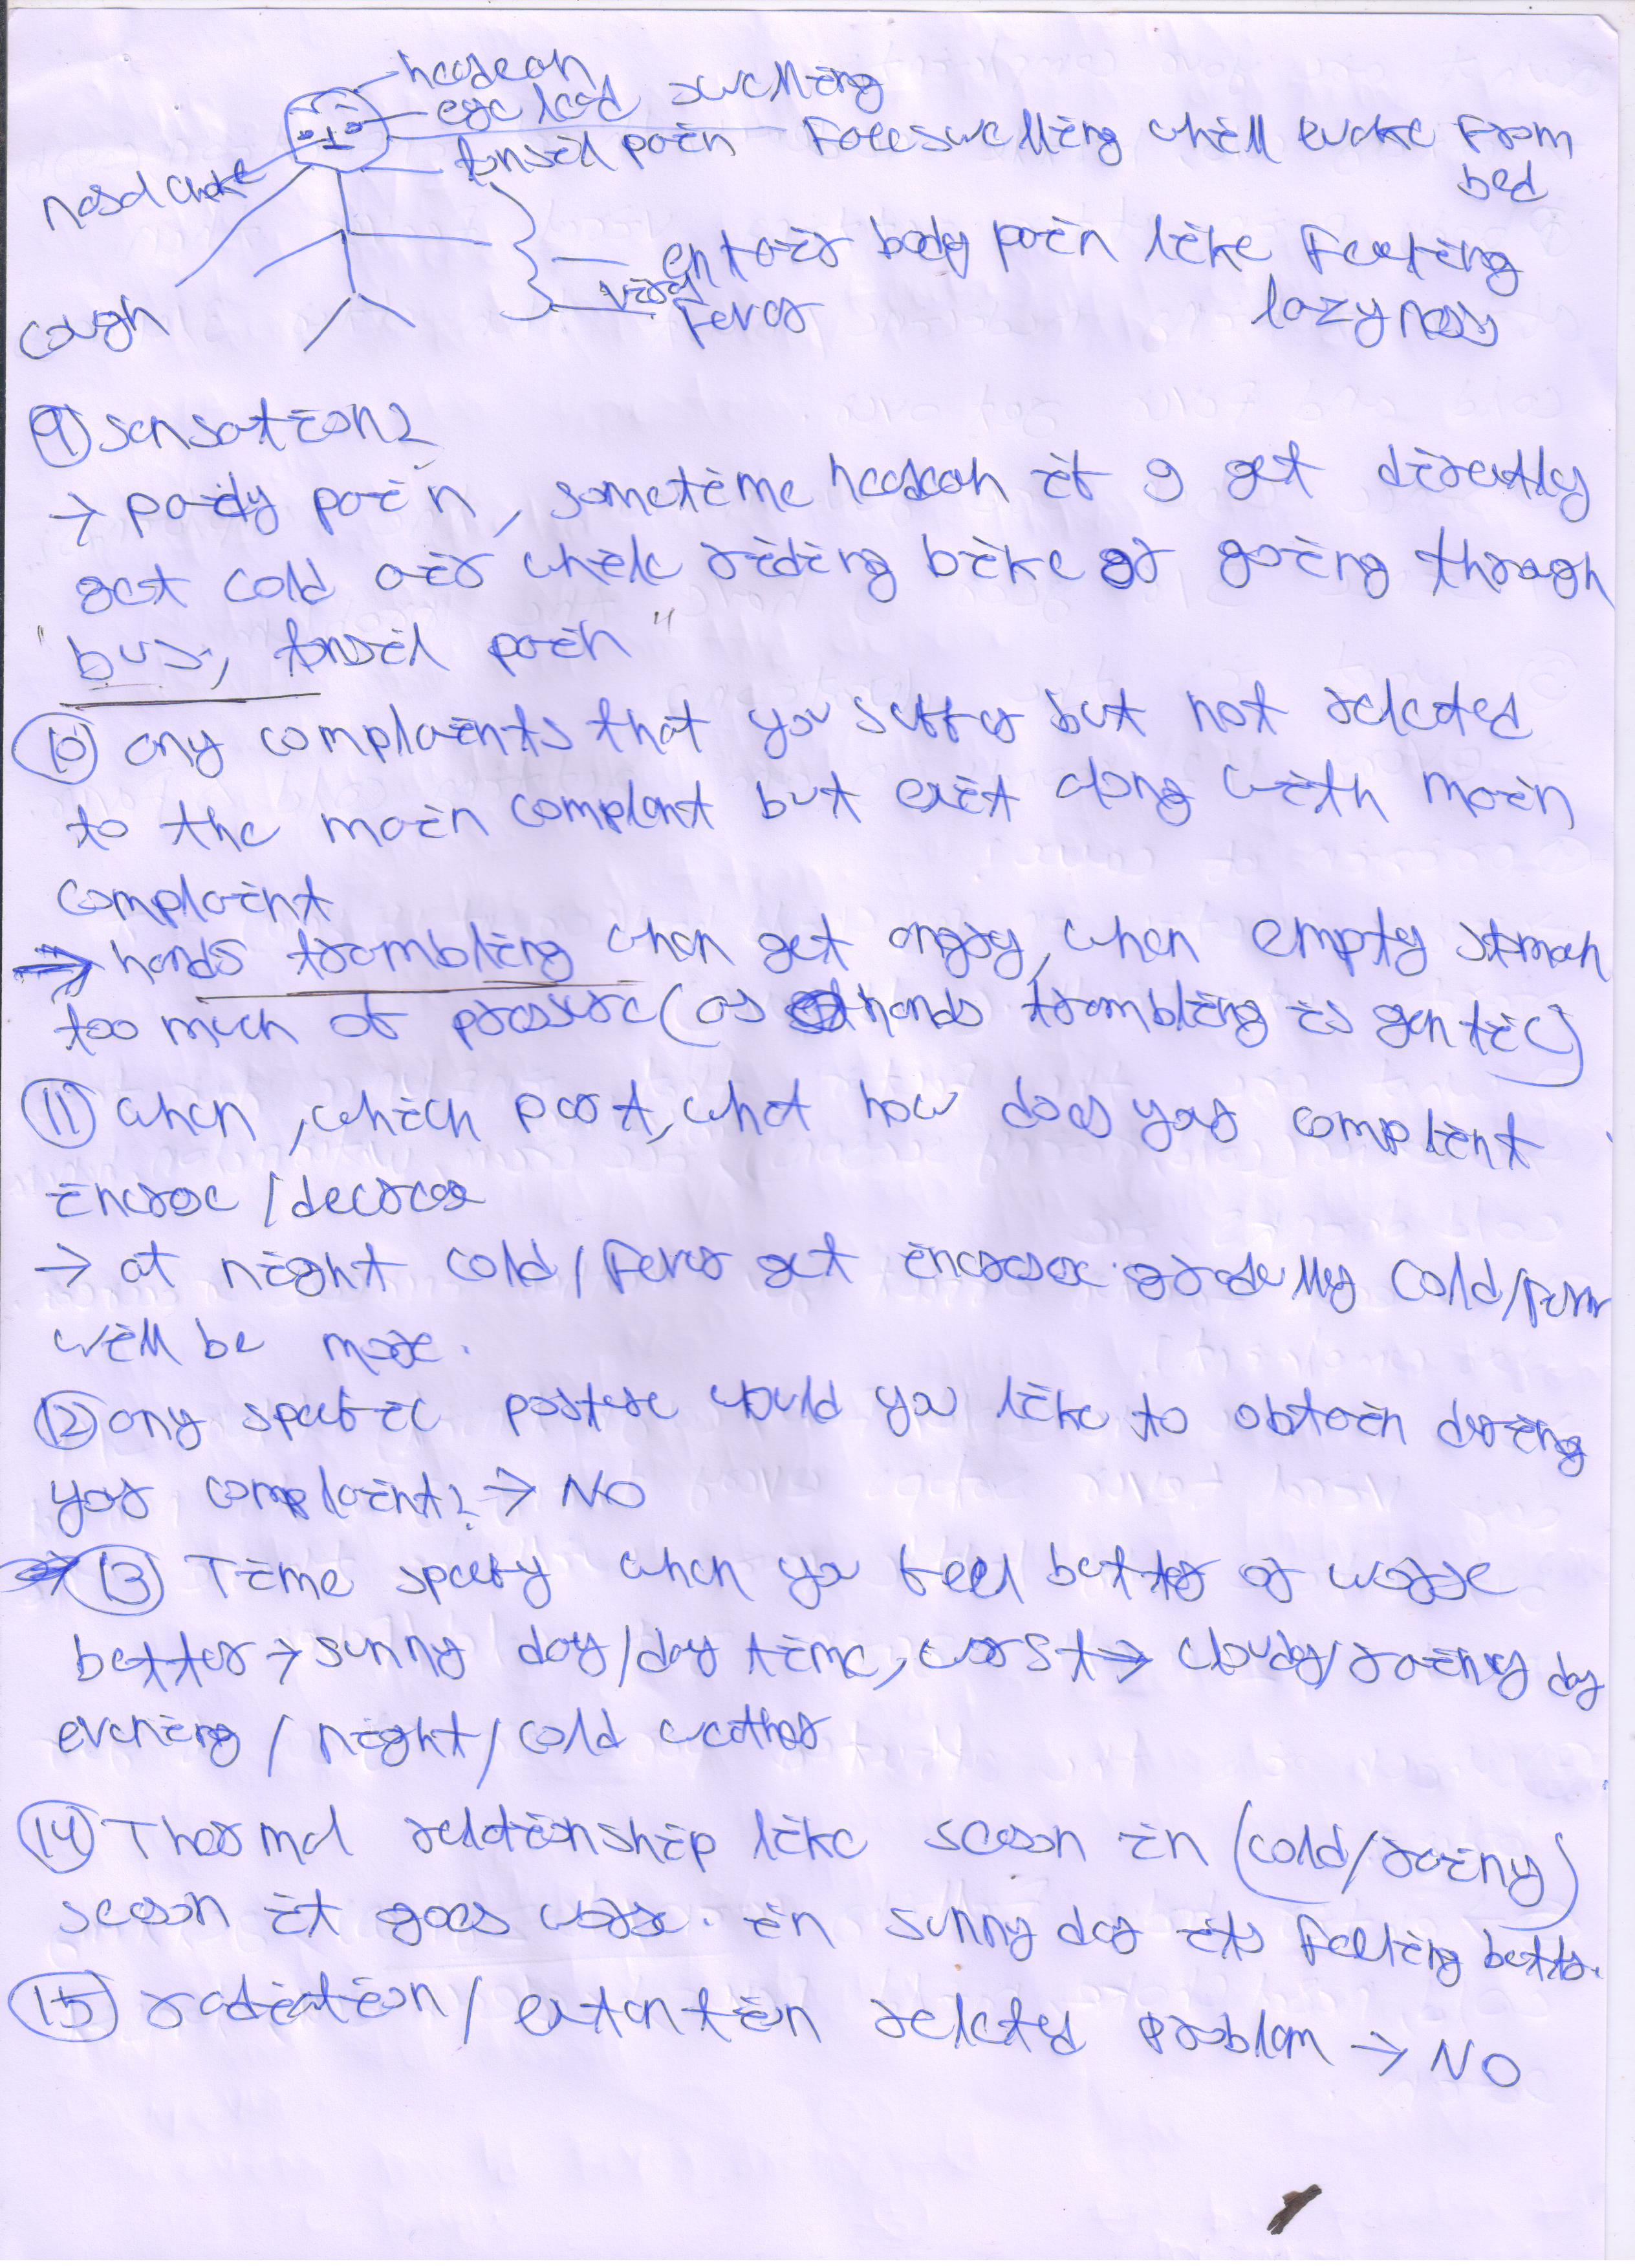 headean
eye load swelling
tonsil pain Face swelling whill wake From
bed
nasal choke
entair body pain like Feeling
lazyness
viral
Fever
cough
9) sensation?
→ paidy pain, sometime headeah if I get directly
get cold air while riding bike or going throagh
"bus, tonsil pain"
10) any complaints that you suffer but not related
to the main complant but exit along with main
complaint
→ hands trambling when get angry, when empty stmach
too much of pressure (as hands trambling is gentic)
11) when, which part, what how does your complient
increse / decrese
→ at night cold / Fever get increase gradually cold/Fever
will be more.
12) any specific posture would you like to obtain during
your complaint? → NO
→ 13) Time specify when you feel better or worse
better → sunny day/day time, worst → cloudy/rainy day
evening / night / cold weather
14) Thermal relationship like season in (cold/rainy)
season it goes worse. in sunny day its Feeling better.
15) radiation / extention related problem → NO